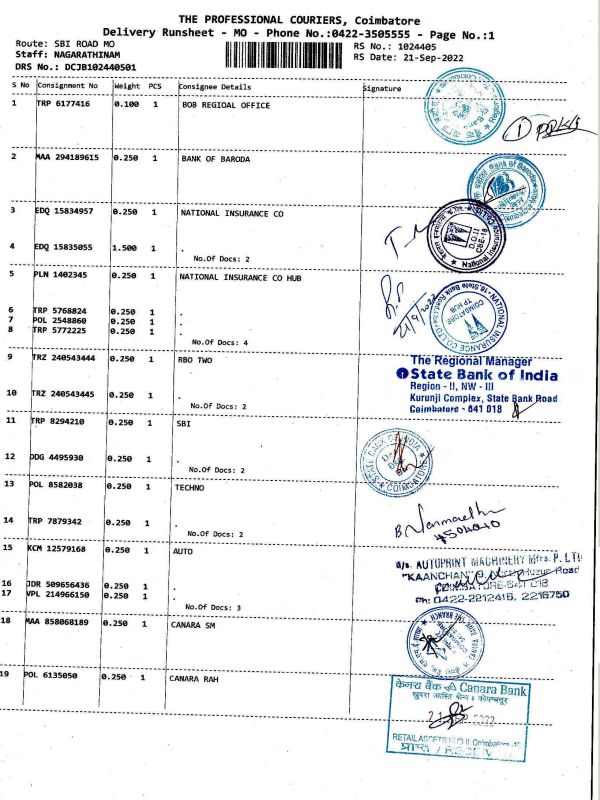 THE PROFESSIONAL COURIERS, Coimbatore
Delivery Runsheet - MO - Phone No.:0422-3505555 - Page No.:1
Route: SBI ROAD MO
Staff: NAGARATHINAM
DRS No.: DCJB102440501
RS No.: 1024405
RS Date: 21-Sep-2022
S No Consignment No Weight PCS Consignee Details Signature
1 TRP 6177416 0.100 1 BOB REGIOAL OFFICE
2 MAA 294189615 0.250 1 BANK OF BARODA
3 EDQ 15834957 0.250 1 NATIONAL INSURANCE CO
4 EDQ 15835055 1.500 1 .
No.Of Docs: 2
5 PLN 1402345 0.250 1 NATIONAL INSURANCE CO HUB
6 TRP 5768824 0.250 1 .
7 POL 2548860 0.250 1 .
8 TRP 5772225 0.250 1 .
No.Of Docs: 4
21/9/2022
NATIONAL INSURANCE CO LTD
COIMBATORE
TP HUB
9 TRZ 240543444 0.250 1 RBO TWO
10 TRZ 240543445 0.250 1 .
No.Of Docs: 2
The Regional Manager
State Bank of India
Region - II, NW - III
Kurunji Complex, State Bank Road
Coimbatore - 641 018
11 TRP 8294210 0.250 1 SBI
12 DDG 4495930 0.250 1 .
No.Of Docs: 2
STATE BANK OF INDIA
COIMBATORE
13 POL 8582038 0.250 1 TECHNO
14 TRP 7879342 0.250 1 .
No.Of Docs: 2
15 KCM 12579168 0.250 1 AUTO
16 JDR 509656436 0.250 1 .
17 VPL 214966150 0.250 1 .
No.Of Docs: 3
AUTOPRINT MACHINERY Mfrs. P. LTD
"KAANCHAN"
Road
COIMBATORE-641 018
Ph: 0422-2212415, 2216750
18 MAA 858068189 0.250 1 CANARA SM
19 POL 6135050 0.250 1 CANARA RAH
केनरा बैंक Canara Bank
RETAIL ASSETS